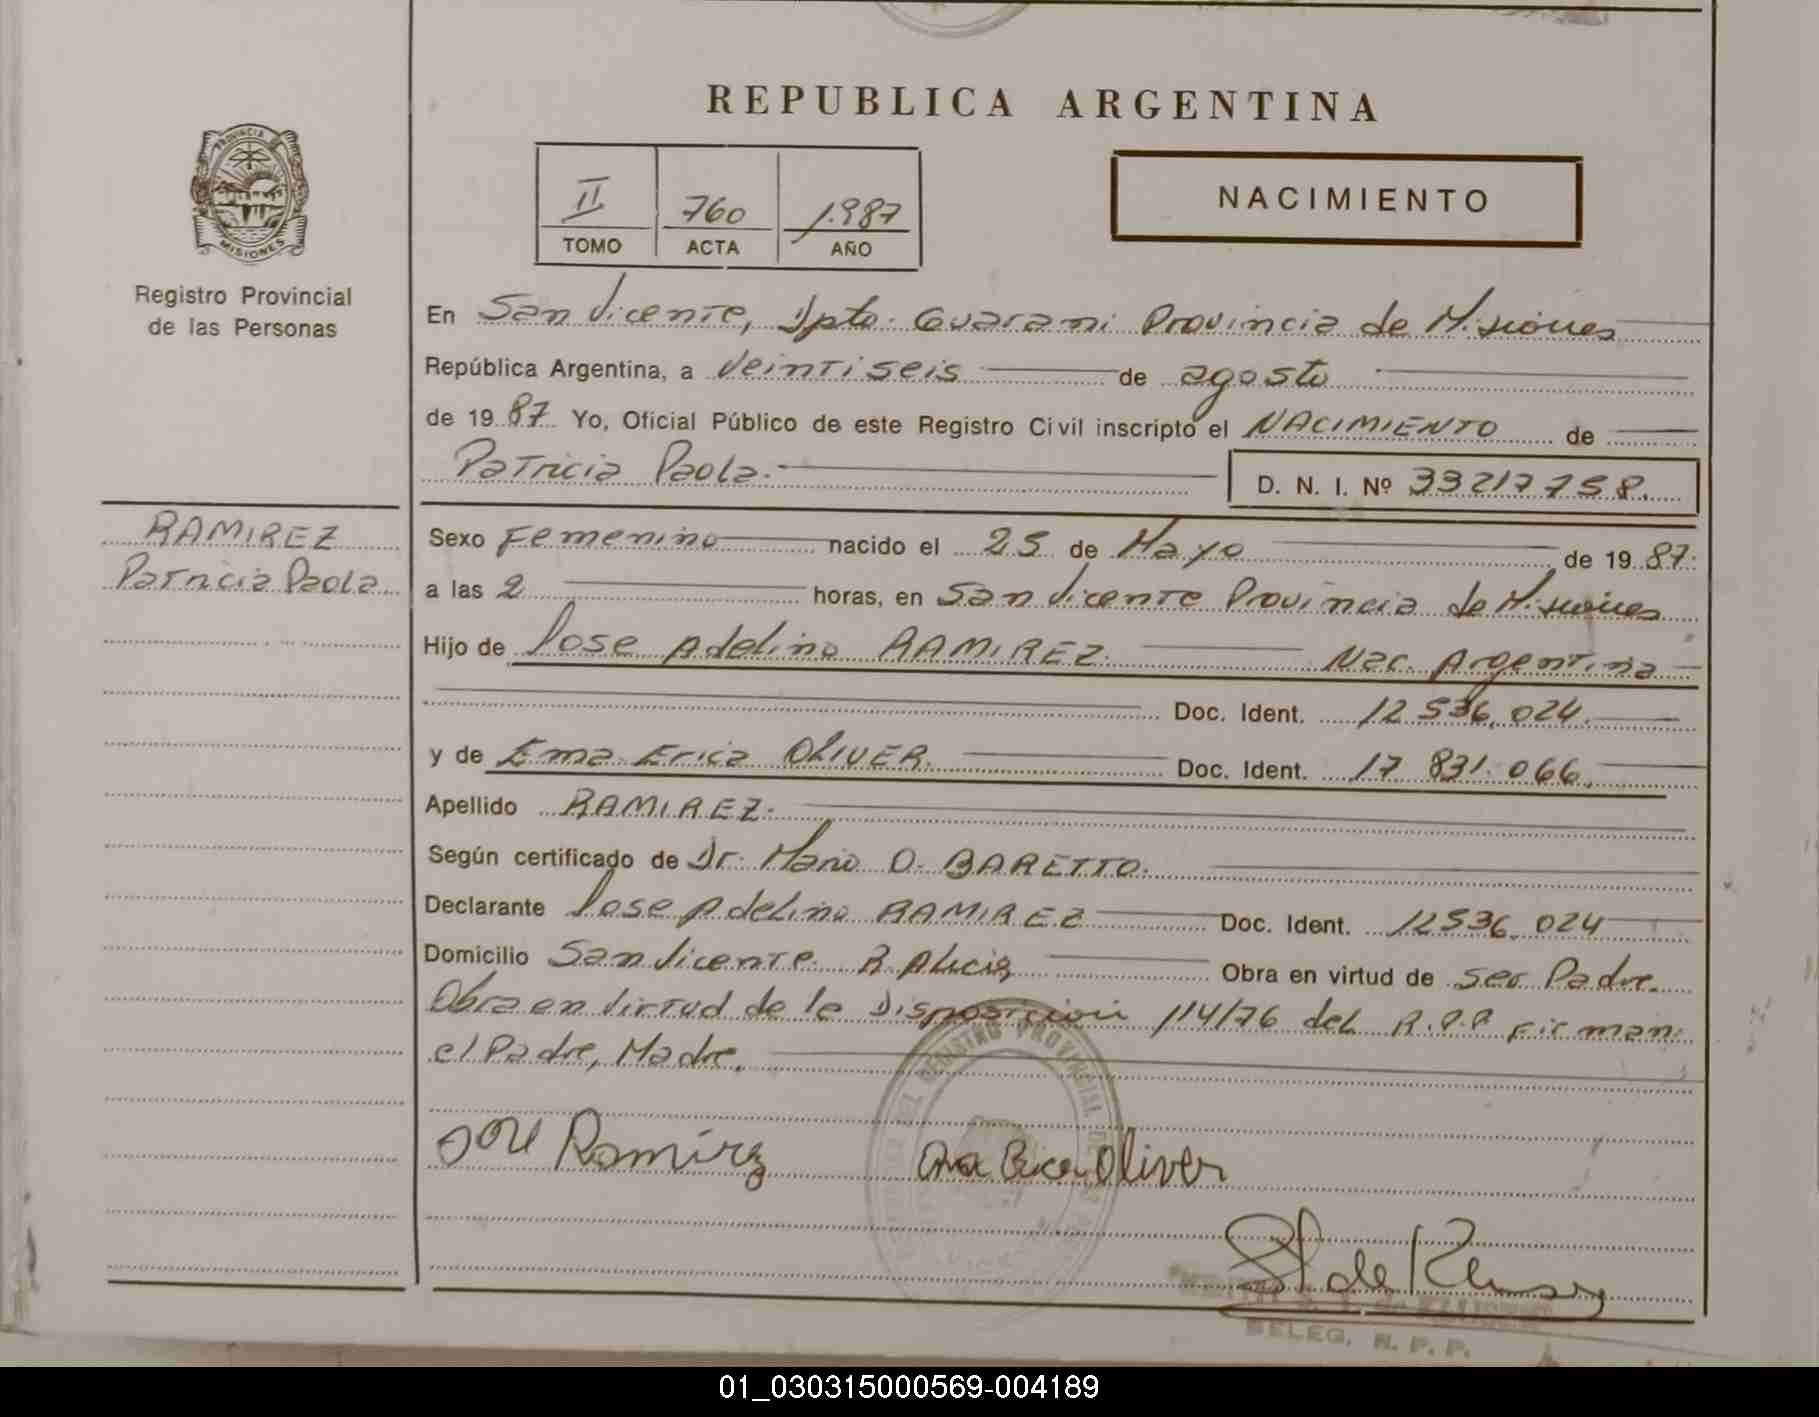 REPUBLICA ARGENTINA
PROVINCIA DE
MISIONES
II 760 1.987
TOMO ACTA AÑO
NACIMIENTO
Registro Provincial
de las Personas
En San Vicente, Dpto. Guarani Provincia de Misiones
República Argentina, a Veintiseis de agosto
de 19 87 Yo, Oficial Público de este Registro Civil inscripto el NACIMIENTO de
Patricia Paola.
D. N. I. Nº 33217758.
RAMIREZ
Patricia Paola
Sexo Femenino nacido el 25 de Mayo de 19 87.
a las 2 horas, en San Vicente Provincia de Misiones
Hijo de Jose Adelino RAMIREZ. Nac. Argentina
Doc. Ident. 12 536.024.
y de Ema Erica OLIVER. Doc. Ident. 17 831.066.
Apellido RAMIREZ.
Según certificado de Dr. Mario O. BARETTO.
Declarante Jose Adelino RAMIREZ Doc. Ident. 12536.024
Domicilio San Vicente. B. Alicia Obra en virtud de ser Padre.
Obra en Virtud de la Disposición 114/76 del R.P.P Firman
el Padre, Madre.
REGISTRO PROVINCIAL DE
José Ramírez Ema Erica Oliver
DELEG. R. P. P.
01_030315000569-004189